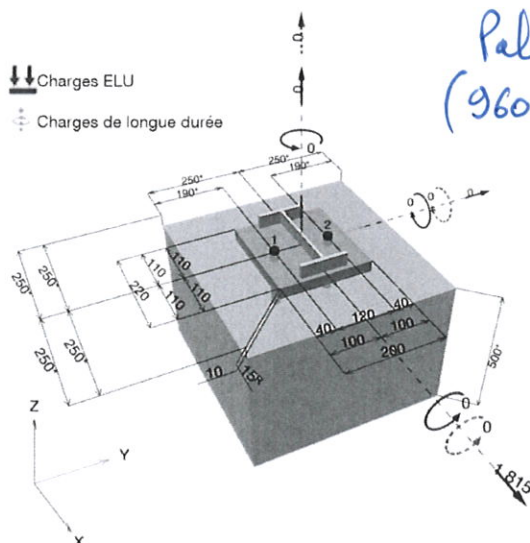 Charges ELU
Charges de longue durée
Pal
(960
0
0
0
250°
250°
190°
190°
0
0
0
1
2
250°
250°
110
110
220
110
110
250°
250°
40
120
40
100
100
200
10
15°
500°
0
0
1.815
Z
Y
X